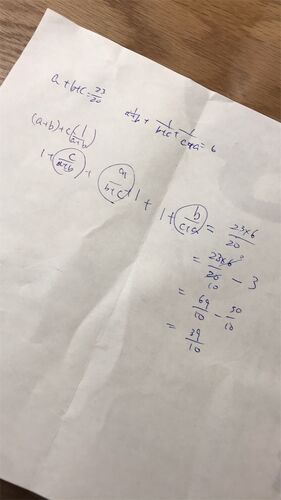 a + b + c = 23/20
1/a+b + 1/b+c + 1/c+a = 6
(a+b)+c(1/a+b)
1 + c/a+b + a/b+c + 1 + 1 + b/c+a = 23x6/20
= 23x6³/20 10 - 3
= 69/10 - 30/10
= 39/10